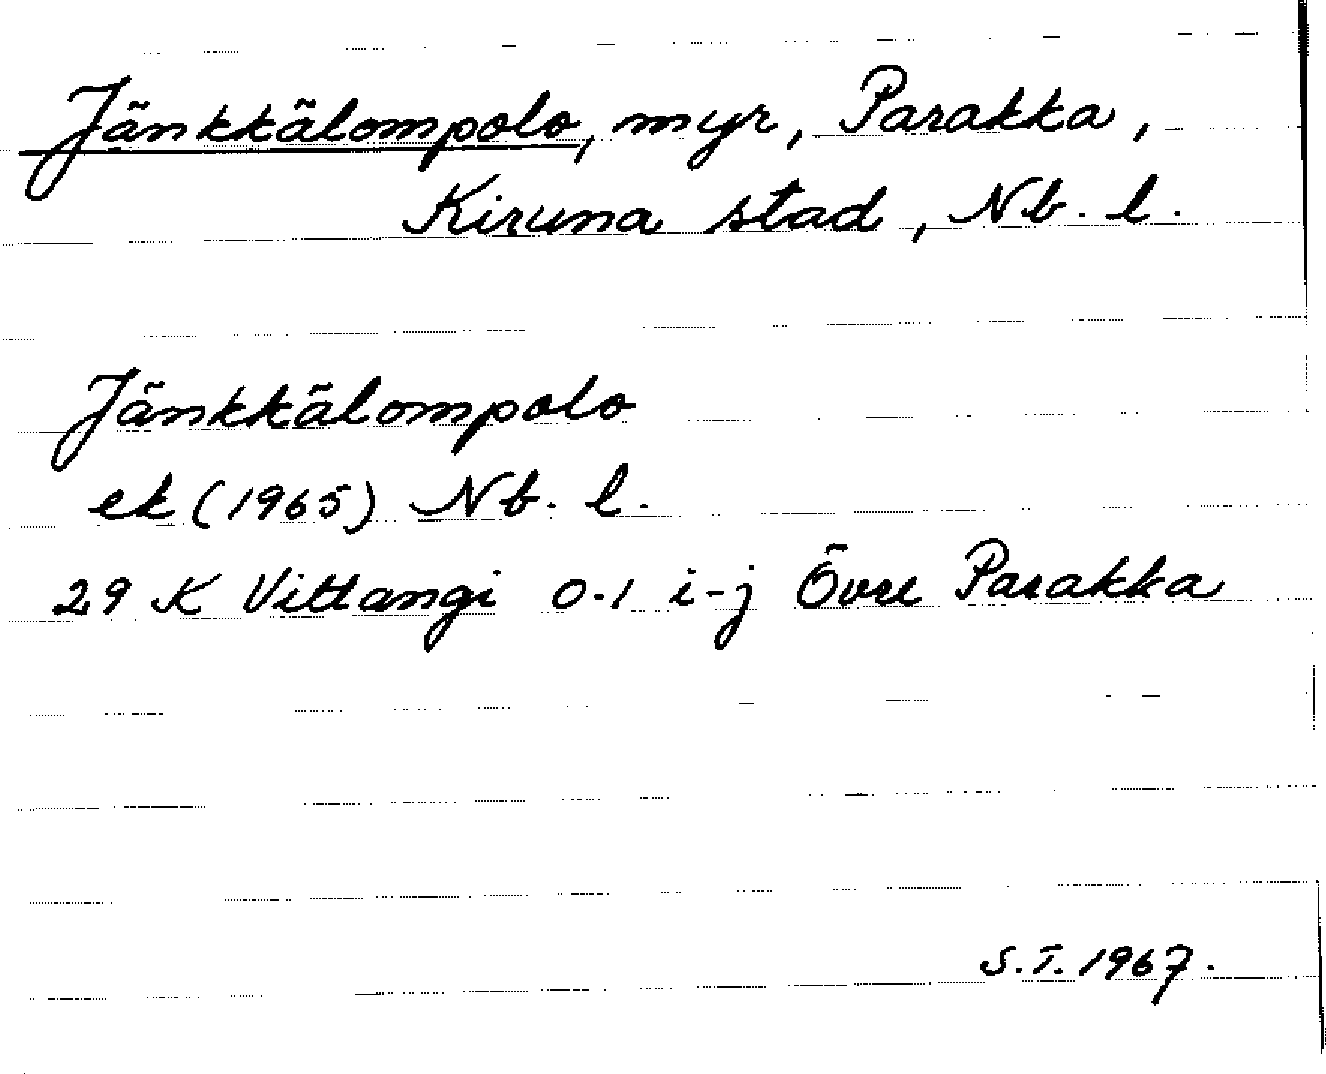 Jänkkälompolo, myr, Parakka,
Kiruna stad, Nb. l.
Jänkkälompolo
ek (1965) Nb. l.
29 K Vittangi 0-1 i-j Övre Parakka
S.T. 1967.